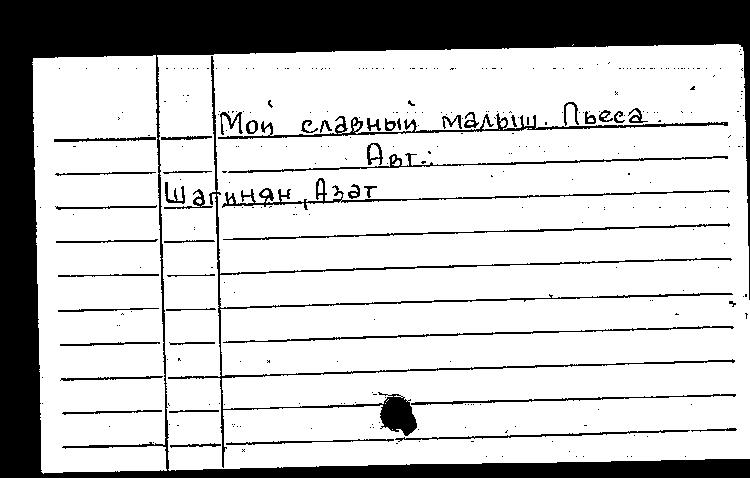 Мой славный малыш. Пьеса.
Авт.:
Шагинян, Азат